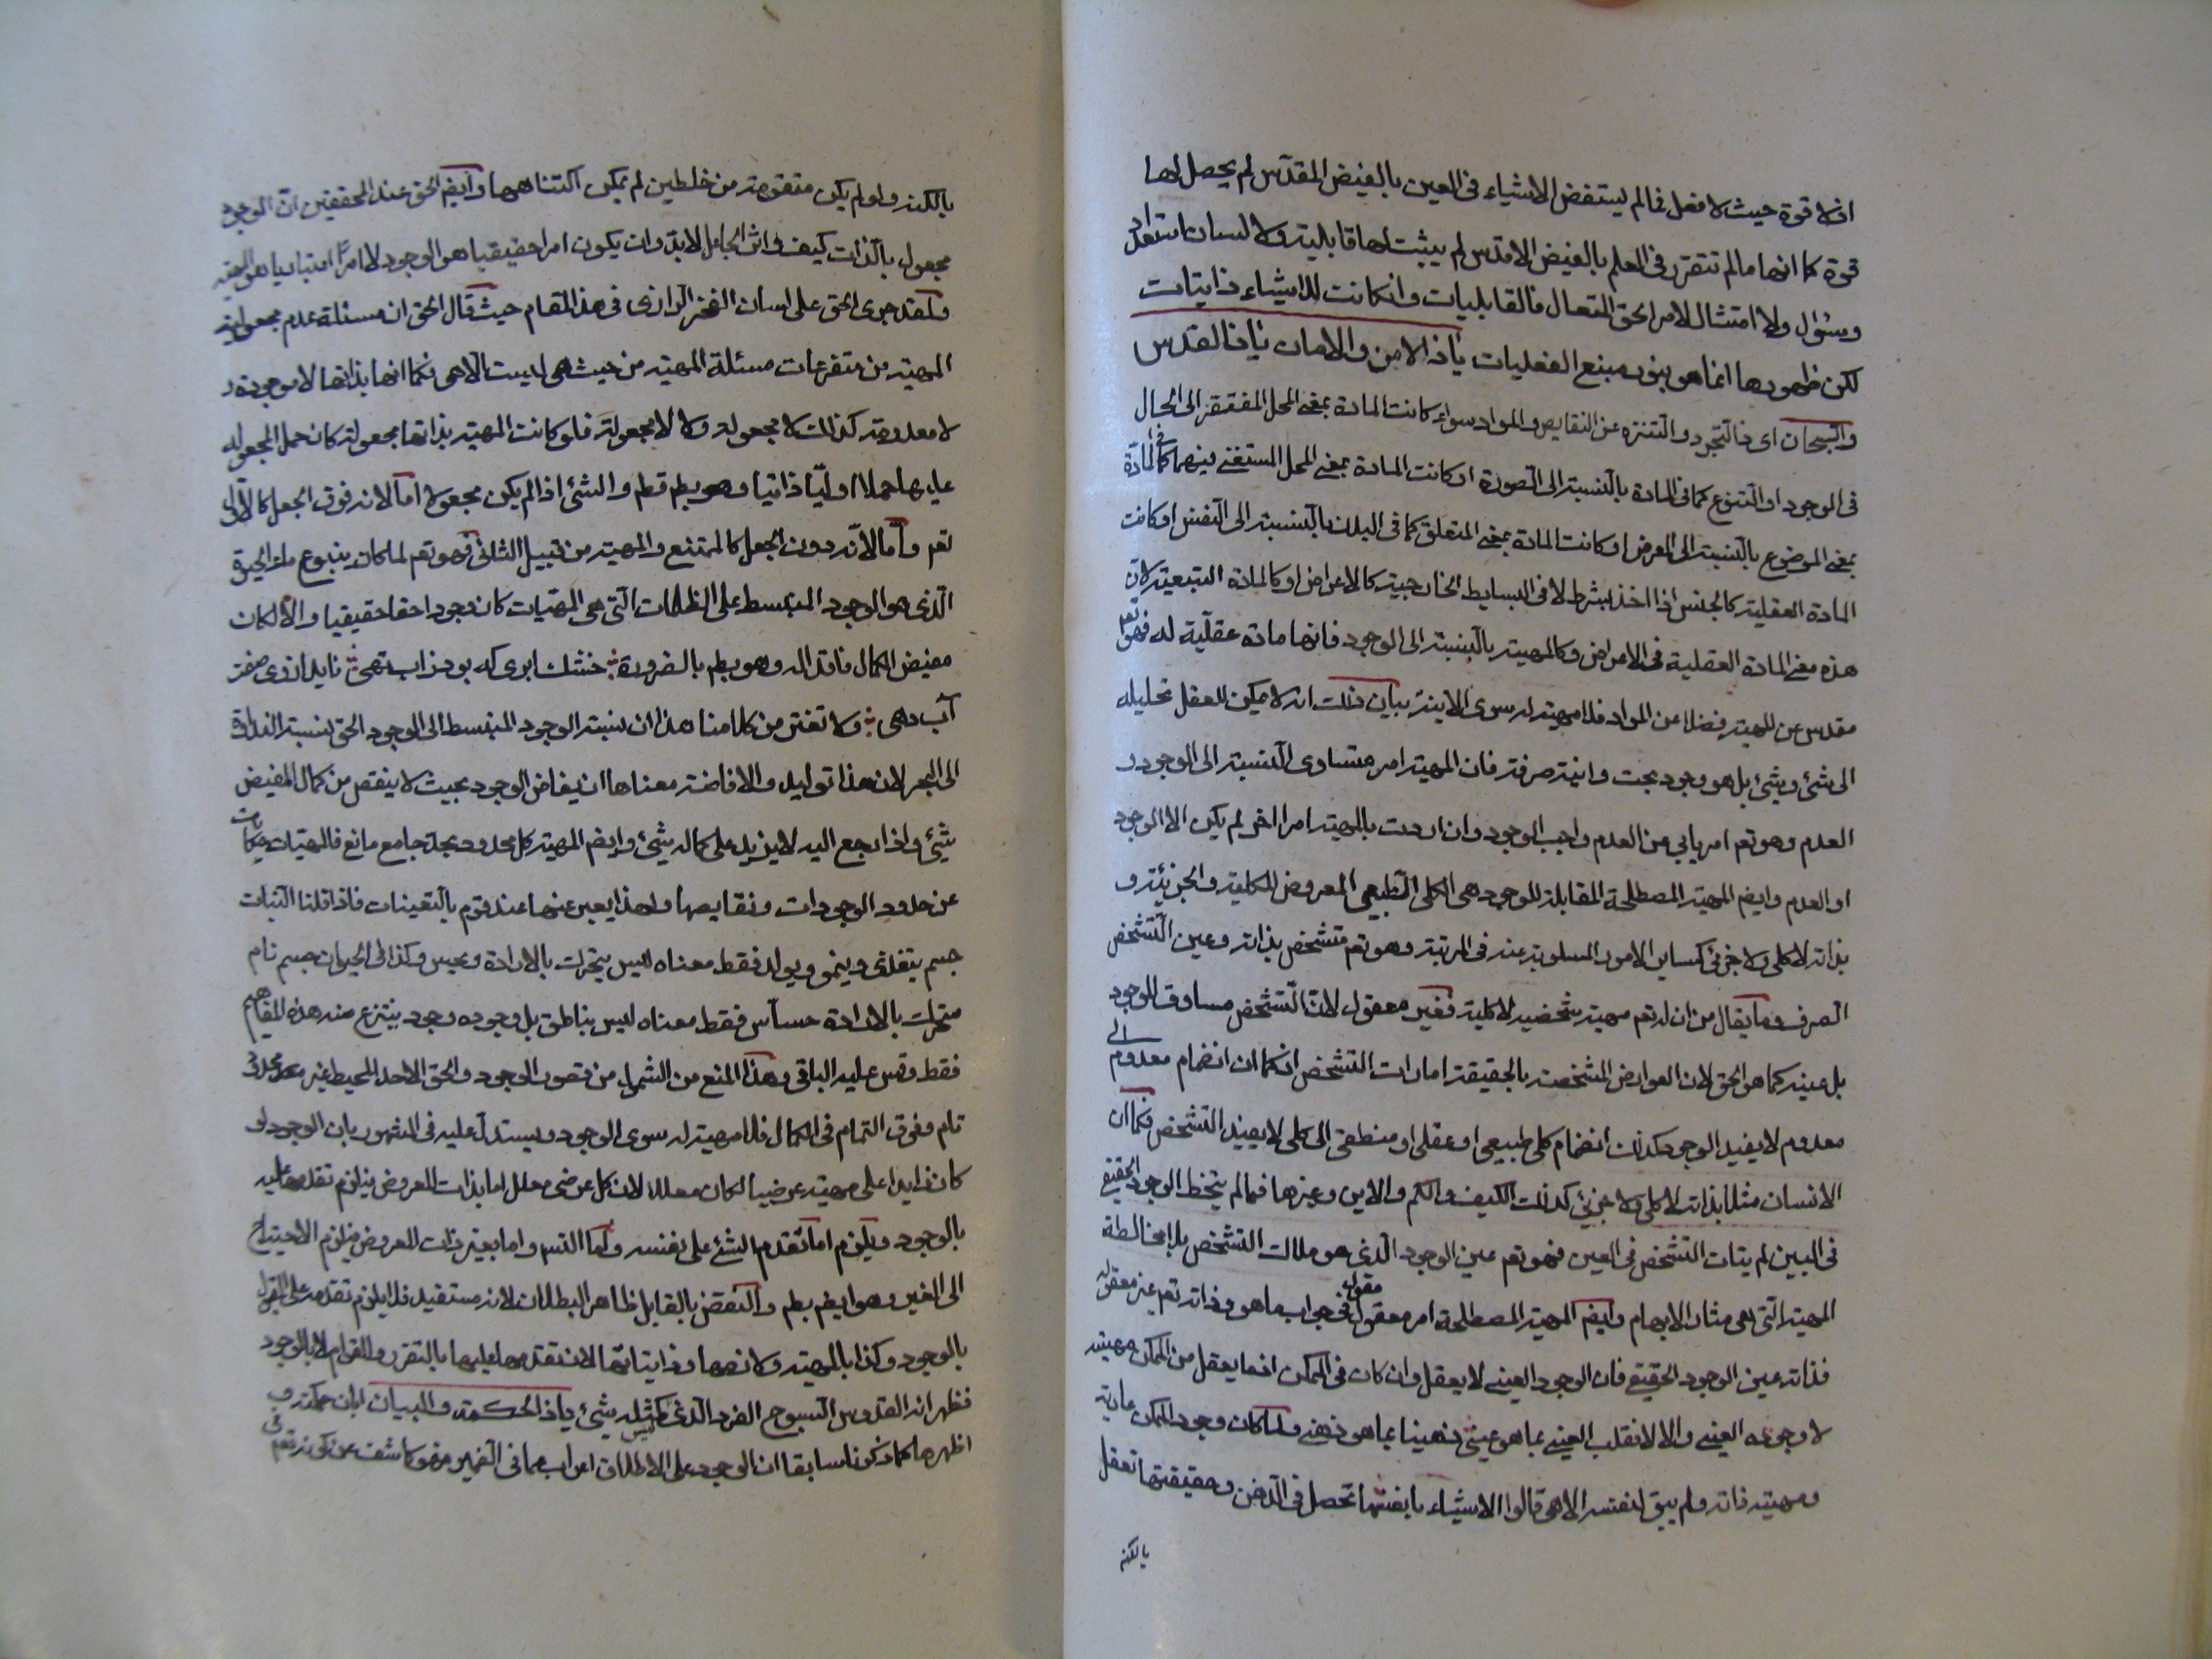 اذ لا قوة حيث لا فعل فما لم يستفض الاشياء فى العين بالفيض المقدّس لم يحصل لها
قوة كما انها ما لم تتقرّر فى العلم بالفيض الاقدس لم يثبت لها قابلية ولا لسان استعداد
وسئوال ولا امتثال لامر الحق المتعال فالقابليات وان كانت للاشياء ذاتيات
لكن ظهورها انما هو بنور منبع الفعليات يا ذا الامن والامان يا ذا القدس
والسبحان اى ذا التجرد والتنزه عن النقايص والمواد سواء كانت المادة بمعنى المحل المفتقر الى الحال
فى الوجود او التنوع كما فى المادة بالنسبة الى الصورة او كانت المادة بمعنى المحل المستغنى فيهما كما فى المادّة
بمعنى الموضوع بالنسبة الى العرض او كانت المادة بمعنى المتعلق كما فى البدن بالنسبة الى النفس او كانت
المادة العقلية كالجنس اذا اخذ بشرط لا فى البسايط الخارجية كالاعراض او كالمادة التبعية لان
هذه معنى المادة العقلية فى الاعراض وكالمهية بالنسبة الى الوجود فانها مادة عقلّية له فهو تعم
مقدس عن المهية فضلا عن المواد فلا مهية له سوى الانية بيان ذلك انه لا يمكن للعقل تحليله
الى شئ وشئ بل هو وجود بحت وانية صرفة فان المهية امر متساوى النسبة الى الوجود و
العدم وهو تعم امر يابى عن العدم واجب الوجود وان اردت بالمهية امرا اخر لم يكن الا الوجود
او العدم وايضم المهية المصطلحة المقابلة للوجود هى الكلى الطبيعى المعروض للكلية والجزئية و
بذاته لا كلى ولا جزئى كساير الامور المسلوبة عنه فى المرتبة وهو تعم متشخص بذاته وعين التّشخّص
الصرف وما يقال من ان له تعم مهية شخصية لا كلية فغير معقول لانّ التّشخّص مساوق للوجود
بل عينه كما هو الحق لان العوارض المشخصة بالحقيقة امارات التشخص اذ كما ان انضمام معدوم الى
معدوم لا يفيد الوجود كذلك انضمام كلى طبيعى او عقلى او منطقى الى كلى لا يفيد التشخص فكما ان
الانسان مثلا بذاته لا كلى ولا جزئى كذلك الكيف والكم والاين وغيرها فما لم يتخط الوجود الحقيقى
فى البين لم يتات التشخص فى العين فهو تعم عين الوجود الّذى هو ملاك التشخص بلا مخالطة
المهية الّتى هى مثار الابهام وايضم المهية المصطلحة امر معقول مقول فى جواب ما هو وذاته تعم غير معقولة
فذاته عين الوجود الحقيقى فان الوجود العينى لا يعقل وان كان فى الممكن انما يعقل من الممكن مهيته
لا وجوده العينى والا لانقلب العينى بما هو عينى ذهنيا بما هو ذهنى ولما كان وجود الممكن عارية
ومهيته ذاته ولم يبق لنفسه الا هى قالوا الاشياء بانفسها تحصل فى الذهن وحقيقتها تعقل
بالكنه
بالكنه ولو لم يكن متقومة من خلطين لم يمكن اكتناهها وايضم الحق عند المحققين انّ الوجود
مجعول بالذات كيف واثر الجاعل لا بدّ وان يكون امرا حقيقيا هو الوجود لا امرًا اعتباريا هو المهية
ولقد جرى الحق على لسان الفخر الرازى فى هذا المقام حيث قال الحق ان مسئلة عدم مجعولية
المهية من متفرعات مسئلة المهية من حيث هى ليست الا هى فكما انها بذاتها لا موجودة و
لا معدومة كذلك لا مجعولة ولا لا مجعولة فلو كانت المهية بذاتها مجعولة كان حمل المجعولية
عليها حملا اوليّا ذاتيا وهو بطم قطم والشئ اذا لم يكن مجعولا اما لانه فوق الجعل كالاوّل
تعم وامّا لانّه دون الجعل كالممتنع والمهية من قبيل الثانى فهو تعم لما كان ينبوع ماء الحيوة
الّذى هو الوجود المنبسط على الظلمات الّتى هى المهيّات كان وجودا حقا حقيقيا والا لكان
مفيض الكمال فاقدا له وهو بطم بالضرورة خشك ابرى كه بود ز اب تهى نايد از وى صفت
آب دهى ولا تفتن من كلامنا هذا ان نسبة الوجود المنبسط الى الوجود الحق نسبة النداوة
الى البحر لان هذا توليد والافاضة معناها ان يفاض الوجود بحيث لا ينقص من كمال المفيض
شئ واذا رجع اليه لا يزيد على كماله شئ وايضم المهية كل محدود بحد جامع مانع فالمهيات حكايات
عن حدود الوجودات ونقايصها ولهذا يعبر عنها عند قوم بالتعينات فاذا قلنا النبات
جسم يتغذى وينمو ويولد فقط معناه ليس يتحرك بالارادة ويحس وكذا فى الحيوان جسم نام
متحرك بالارادة حساس فقط معناه ليس بناطق بل وجوده وجود ينتزع منه هذه المفاهيم
فقط وقس عليه الباقى وهذا المنع من الشمول من قصور الوجود والحق الاحد المحيط غير محدود
تام وفوق التمام فى الكمال فلا مهية له سوى الوجود ويستدل عليه فى المشهور بان الوجود لو
كان زايدا على مهيته عرضيا لكان معللا لان كل عرضى معلل اما بذات المعروض فيلزم تقدمها عليه
بالوجود ويلزم اما تقدم الشئ على نفسه وامّا التسم واما بغير ذات المعروض فيلزم الاحتياج
الى الغير وهو ايضم بطم والنقض بالقابل ظاهر البطلان لانه مستفيد فلا يلزم تقدمه على المقبول
بالوجود وكذا بالمهية ولازمها وذاتياتها لان تقدمها عليها بالتقرر والقوام لا بالوجود
فظهر انه القدوس السبوح الفرد الّذى ليس كمثله شئ يا ذا الحكمة والبيان ابان حكمته و
اظهرها كما ذكرنا سابقا ان الوجود على الاطلاق اعراب عما فى الضمير وهو كاشف عن